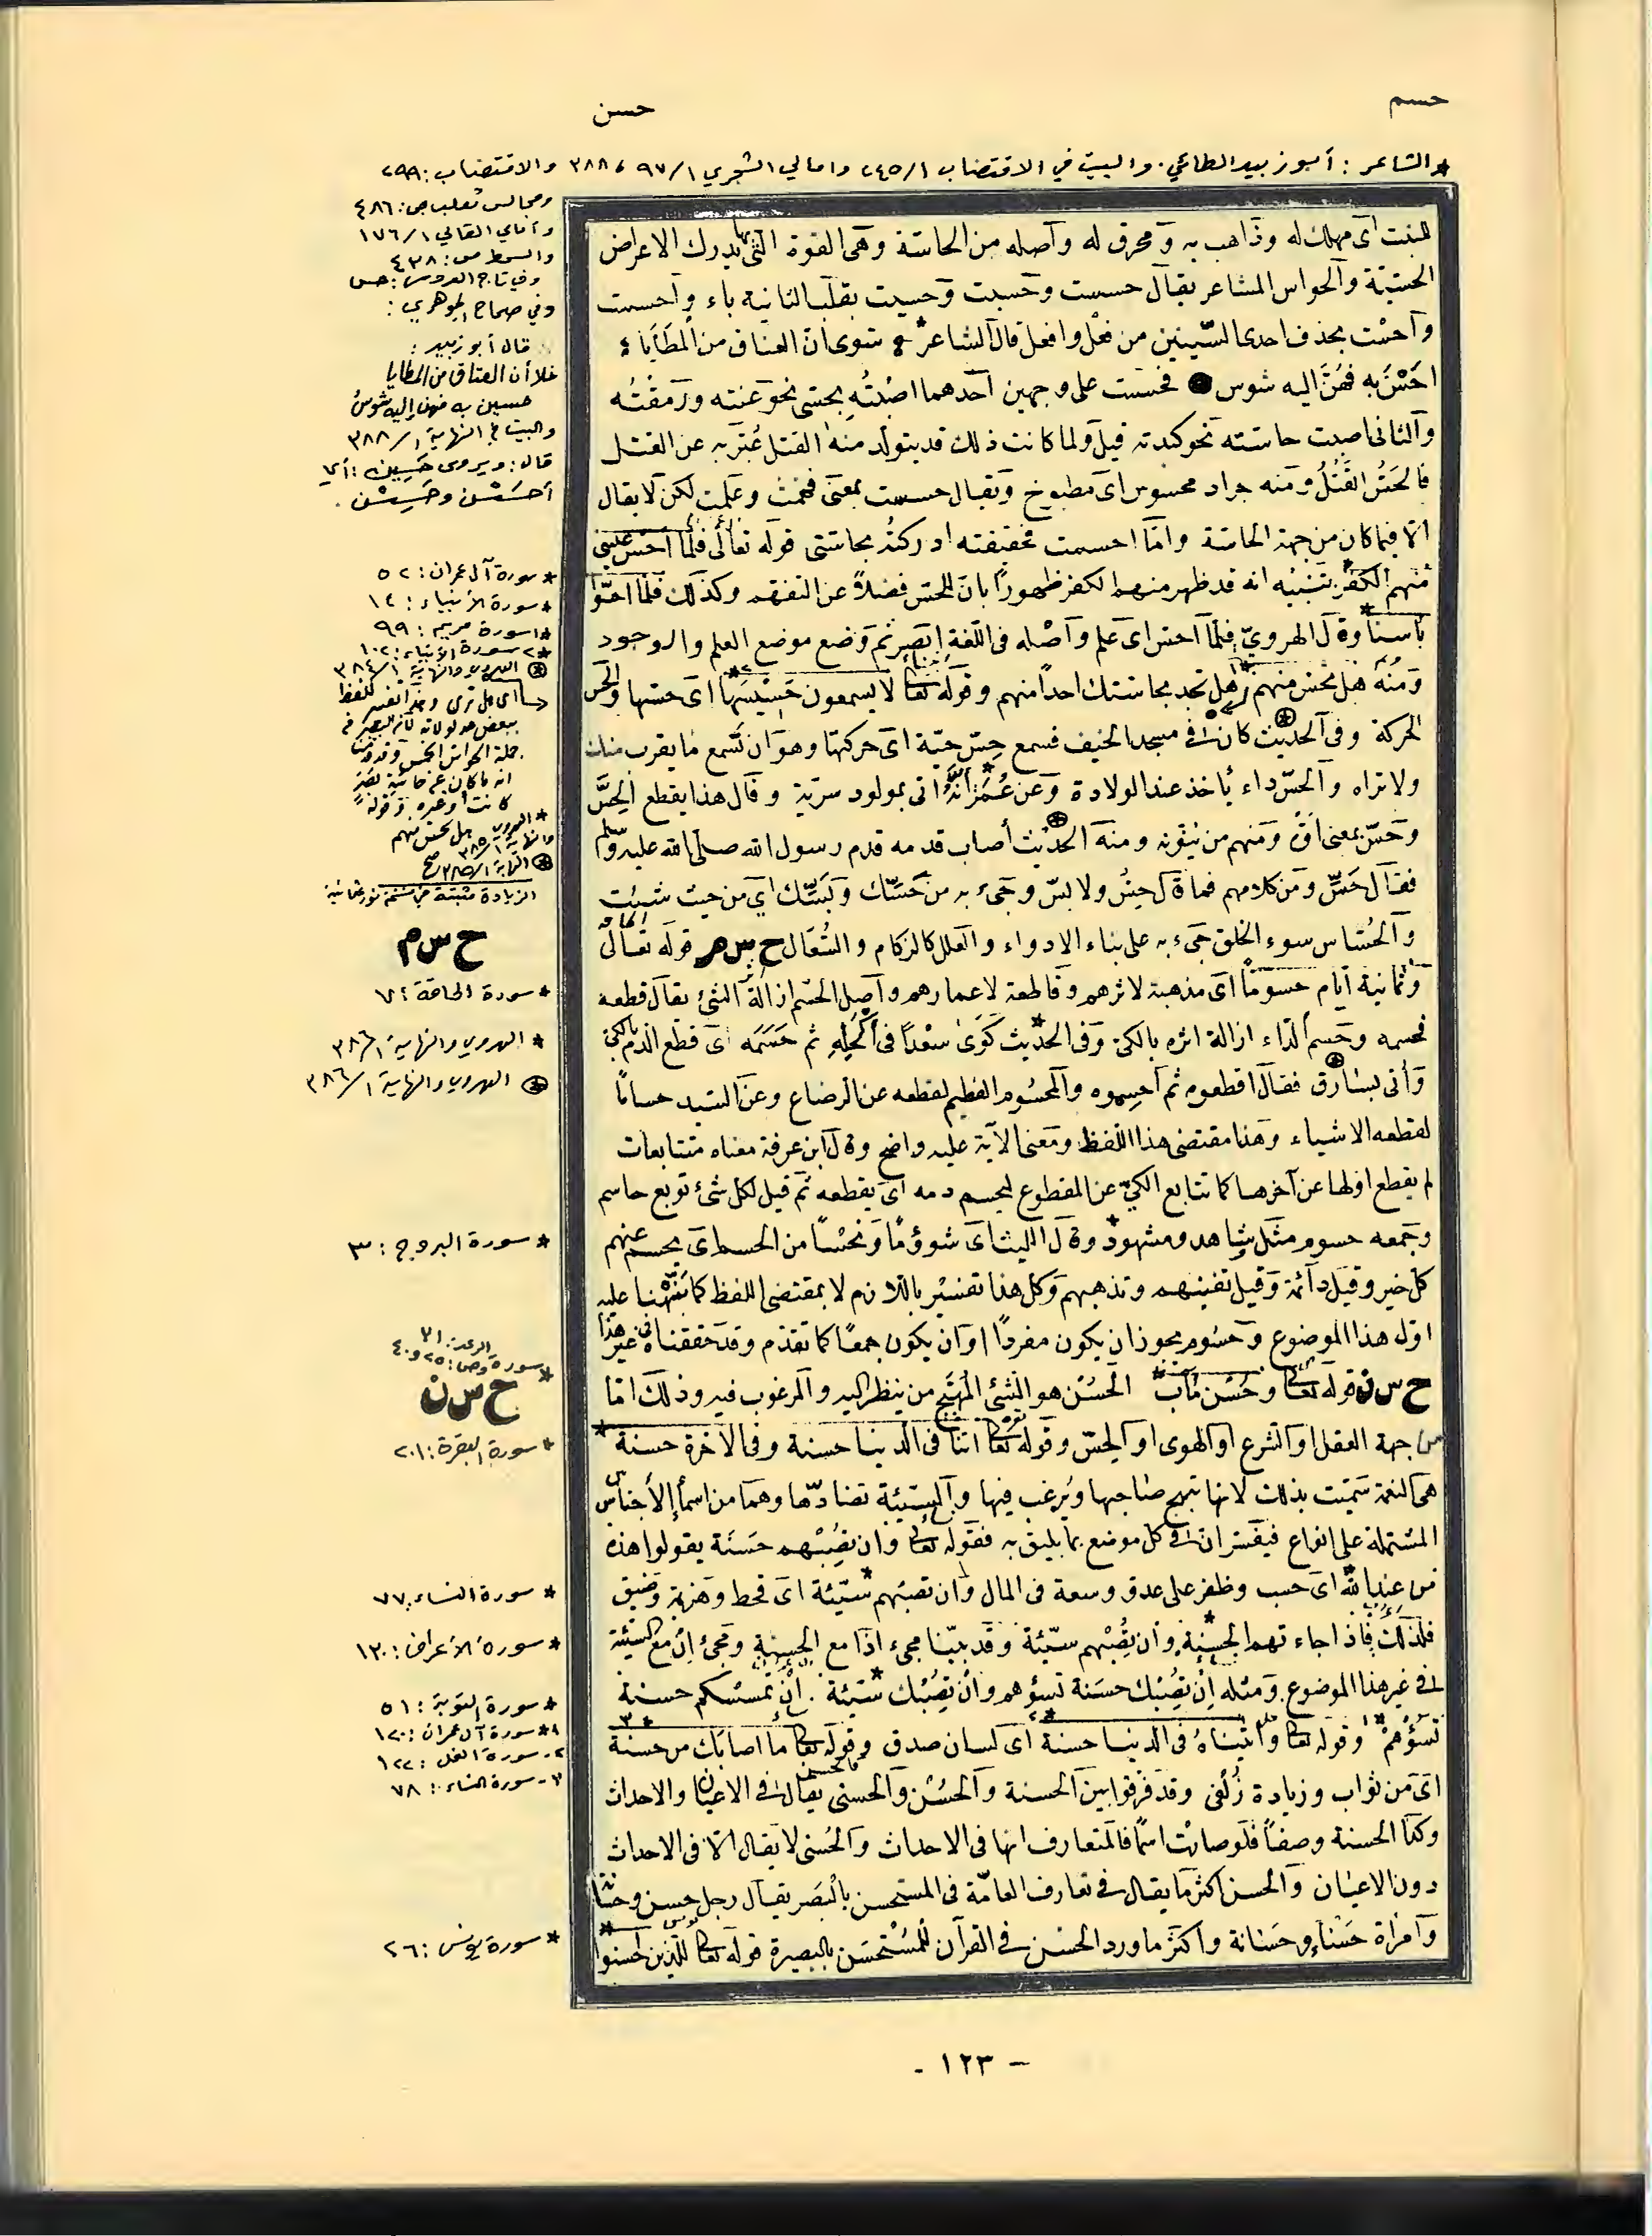 حسم
حسن
* الشاعر : أبو زبيد الطائي . والبيت في الاقتضاب ٢٤٥/١ وامالي الشجري ٩٧/١ ، ٣٨٨ والاقتضاب : ٢٩٩
ومجالس ثعلب ص : ٤٨٦
وأمالي القالي ١٧٦/١
والسمط ص : ٤٣٨
وفي تاج العروس : حس
وفي صحاح الجوهري :
قال أبو زبيد :
خلا أن العتاق من المطايا
حسين به فهن إليه شوس
والبيت في النهاية ٣٨٨/١
قال : ويروى حَسِين : أي
أحسَسْن وحَسِسْن .
للنبت اى مهلك له وذاهب به ومحرق له وأصله من الحاسّة وهى القوة التى بها يدرك الاعراض
الحسّيّة والحواس المشاعر يقال حسست وحسيت وحسيت بقلب الثانية ياء واحسست
واحَسْت بحذف احدى السّينين من فعل وافعل قال الشاعر * سوى ان العتاق من المطايا
احَسْنَ به فهُنَّ اليه شوس فحسست على وجهين احدهما اصبتُه بحسى نحو عنته ورمقْتُه
والثانى اصبت حاسّته نحو كبدته قيل ولما كانت ذلك قد يتولد منه القتل عُبّر به عن القتل
فالحَسُّ القَتْلُ ومنه جراد محسوس اى مطبوخ ويقال حسست بمعنى فهمت وعلمت لكن لا يقال
الّا فيما كان من جهة الحاسّة وامّا احسست فحقيقته ادركته بحاستى قوله تعالى فلمّا احسّ عيسى
منهم الكفر تنبيه انه قد ظهر منهم الكفر ظهوراً بان للحسّ فضلاً عن التفهم وكذلك فلمّا احسّوا
بأسنا وقال الهروىّ فلمّا احسّ اى علم وأصْله فى اللّغة ابصر ثم وضع موضع العلم والوجود
ومنه هل تحس منهم اى هل تجد بحاستك احداً منهم وقوله تعالى لا يسمعون حسيسها اى حسّها والحسّ
الحركة وفى الحديث كان فى مسجد الخيف فسمع حِسّ حيّة اى حركتها وهو ان تسمع ما يقرب منك
ولا تراه والحسّ داء يأخذ عند الولادة وعن عُمَر انّه اتى بمولود سريّة وقال هذا يقطع الحِسَّ
وحَسّ بمعنى افّ ومنهم من ينوّنه ومنه الحديث أصاب قدمه قدم رسول الله صلى الله عليه وسلم
فقال حَسِّ ومن كلامهم فما قال حِسّ ولا بسّ وجىء به من حَسّك وبَسّك اي من حيث شئت
والحُساس سوء الخلق جىء به على بناء الادواء والعلل كالزكام والسُّعال ح س م قوله تعالى
وثمانية أيام حسومًا اى مذهبة لاثرهم وقاطعة لاعمارهم وأصل الحسم ازالة اثر الشئ يقال قطعه
فحسمه وحسم الدّاء ازالة اثره بالكىّ وفى الحديث كَوَى سعْدًا فى أكْحَلِه ثم حَسَمَه اى قطع الدم بالكىّ
وأتى بسارق فقال اقطعوه ثم احسِموه والمحسُوم الفطيم لقطعه عن الرضاع وعن السّيد حسامًا
لقطعه الاشياء وهنا مقتضى هذا اللفظ ومعنى الآية عليه واضح وقال ابن عرفة معناه متتابعات
لم يقطع اولها عن آخرها كما تتابع الكىّ عن المقطوع ليحسم دمه اى يقطعه ثم قيل لكل شئ توبع حاسم
وجمعه حسوم مثل شاهد ومشهود وقال الليث اى شؤومًا ونحْسًا من الحسم اى يحسم عنهم
كل خير وقيل دائمة وقيل تفنيهم وتذهبهم وكل هذا تفسير باللازم لا بمقتضى اللفظ كما نبّهنا عليه
اوّل هذا الموضوع وحسُوم يجوز ان يكون مفردًا او ان يكون جمعًا كما تقدّم وقد حققناه فى غير هذا
ح س ن قوله تعالى وحُسْن مآب الحُسْن هو الشئ المُبْهج من ينظر اليه والمرغوب فيه وذلك امّا
من جهة العقل او الشرع او الهوى او الحِسّ وقوله تعالى آتنا فى الدنيا حسنة وفى الآخرة حسنة
هى النعمة سمّيت بذلك لانها تبهج صاحبها ويُرغب فيها والسّيئة تضادّها وهما من اسماء الأجناس
المشتملة على انواع فيفسّران فى كل موضع بما يليق به فقوله تعالى وان تصِبْهم حَسَنَة يقولوا هذه
من عند الله اى خصب وظفر على عدوّ وسعة فى المال وان تصبهم سيّئة اى قحط وهزيمة وضيق
فلذلك فاذا جاءتهم الحسنة وان تصِبْهم سيّئة وقد بيّنا مجىء اذا مع الحسنة ومجئ ان مع السيّئة
فى غير هذا الموضوع ومثله إن تصِبْك حسَنة تسؤهم وان تصِبْك سيّئة . ان تمسسكم حسنة
تسؤْهمْ وقوله تعالى وآتيناهُ فى الدنيا حسنة اى لسان صدق وقوله تعالى ما اصابك من حسنة
اى من ثواب وزيادة زُلْفى وقد فرّقوا بين الحسنة والحُسْن والحسنى فالحسن يقال فى الاعيان والاحداث
وكذا الحسنة وصفاً فلو صارت اسمًا فالمتعارف انها فى الاحداث والحُسنى لا يقال الّا فى الاحداث
دون الاعيان والحسن اكثر ما يقال فى تعارف العامّة فى المستحسن بالبَصر يقال رجل حسن وحُسّان
وامرأة حَسْناء وحسّانة واكثر ما ورد الحسْن فى القرآن للمُسْتحسَن بالبصيرة قوله تعالى للّذين احسنوا
* سورة آل عمران : ٥٢
* سورة الأنبياء : ١٢
*١ سورة مريم : ٩٩
*٢ سورة الأنبياء : ١٠٢
الهروي والنهاية ٣٨٤/١
اى هل ترى وهذا تفسير للفظ
ببعض مدلولاته لأن البصر فى
جملة الحواس الخمس وقد قدمنا
كانت أو غيره وقوله
هل تحس منهم
* الهروي
والنهاية ٣٨٥/١
النهاية ٣٨٥/١
الزيادة مثبتة من نسخة نور عثمانية
ح س م
* سورة الحاقة : ٧
* الهروي والنهاية ٣٨٦/١
الهروي والنهاية ٣٨٦/١
* سورة البروج : ٣
الرعد : ٢٩
* سورة ص : ٢٥ و ٤٠
ح س ن
* سورة البقرة : ٢٠١
* سورة النساء : ٧٧
* سورة الأعراف : ١٣٠
* سورة التوبة : ٥١
١* سورة آل عمران : ١٢٠
٢- سورة النحل : ١٢٢
٣- سورة النساء : ٧٨
* سورة يونس : ٢٦
- ١٢٣ -